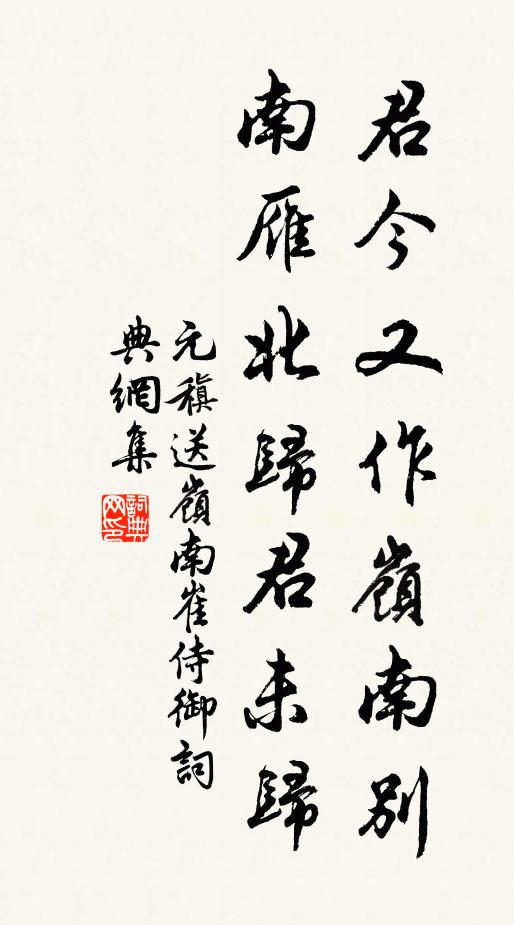 君今又作嶺南別
南雁北歸君未歸
元稹送嶺南崔侍御詞
典網集
詞典网印